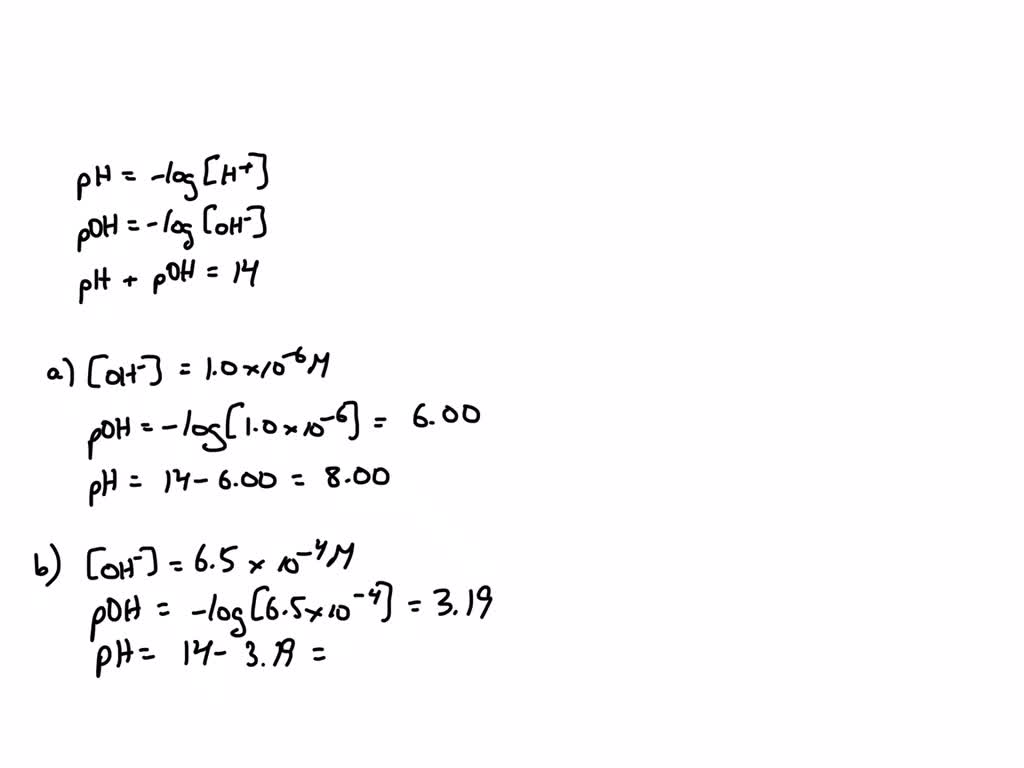 pH = -log[H⁺]
pOH = -log[OH⁻]
pH + pOH = 14
a) [OH⁻] = 1.0×10⁻⁶M
pOH = -log[1.0×10⁻⁶] = 6.00
pH = 14 - 6.00 = 8.00
b) [OH⁻] = 6.5 × 10⁻⁴M
pOH = -log[6.5×10⁻⁴] = 3.19
pH = 14 - 3.19 =